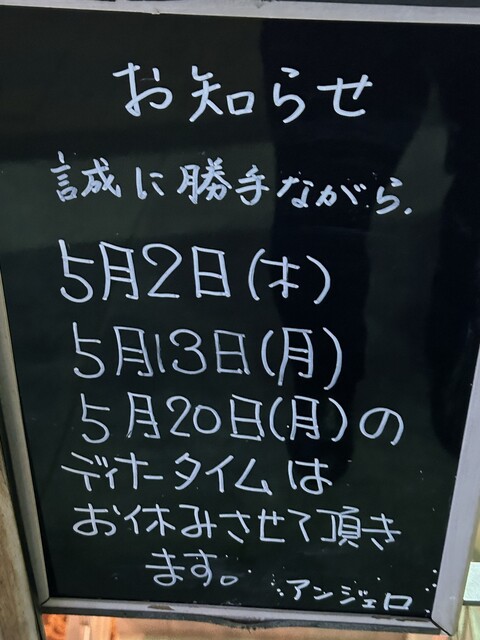 お知らせ
誠に勝手ながら、
5月2日(木)
5月13日(月)
5月20日(月)の
ディナータイムは
お休みさせて頂き
ます。
アンジェロ